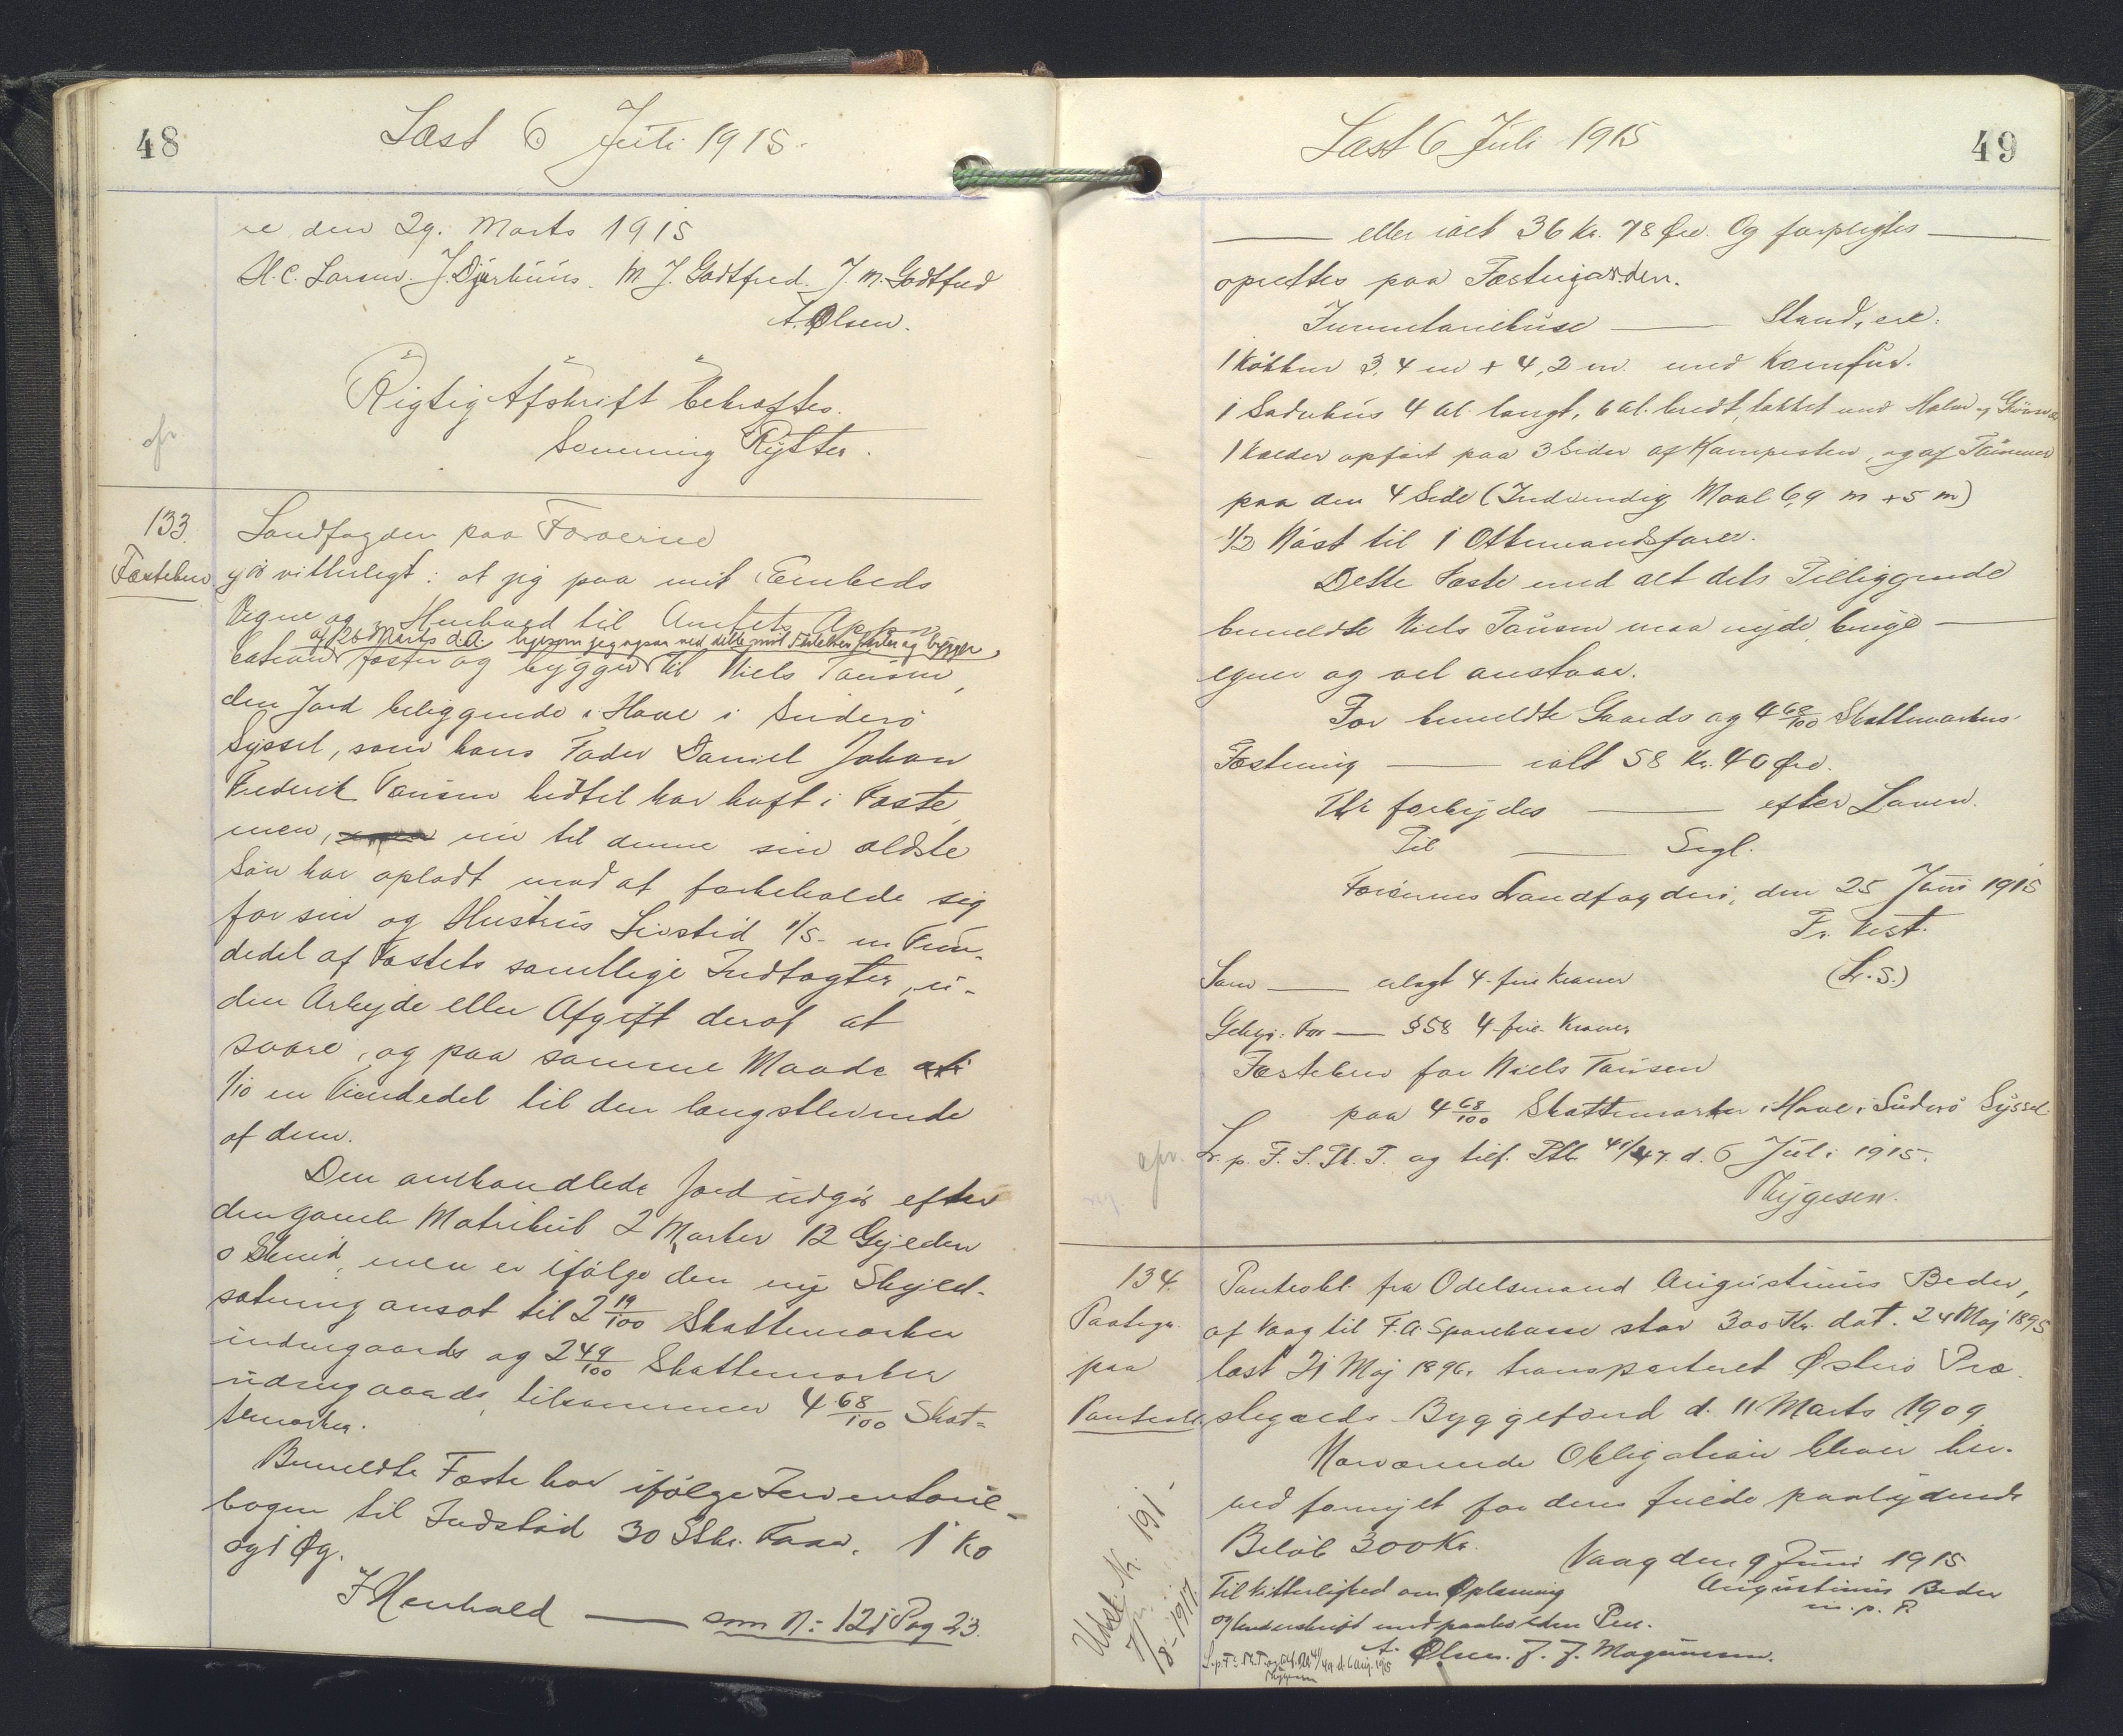 48
Læst 6 Juli 1915.
re den 29. Marts 1915
H. C. Larsen. J. Djurhuus. M. J. Godtfred. J. M. Godtfred
A. Olsen.
Rigtig Afskrift bekræftes.
Rytter.
cfr
133.
Fæstebrev
Landfogden paa Færøerne
gør vitterligt: at jeg paa mit Embeds
Vegne og i Henhold til Amtets Appro
af 26 Marts d.A. ligesom jeg ogsaa ved dette mit Fæstebrev fæster og bygger,
bation fæster og bygger til Niels Tausen,
den Jord beliggende i Hove i Suderø
Syssel, som hans Fader Daniel Johan
Frederik Tausen hidtil har haft i Fæste,
men, nu til denne sin ældste
Søn har opladt mod at forbeholde sig
for sin og Hustrus Livstid 1/5 en Fem-
dedel af Fæstets samtlige Indtægter, u-
den Arbejde eller Afgift deraf at
svare, og paa samme Maade
1/10 en Tiendedel til den længstlevende
af dem.
Den omhandlede Jord udgør efter
den gamle Matrikul 2 Marker 12 Gylden
0 Skind, men er ifølge den ny Skyld-
sætning ansat til 2 19/100 Skattemarker
indengaards og 2 49/100 Skattemarker
udengaards, tilsammen 4 68/100 Skat-
temarker.
Bemeldte Fæste har ifølge Inventarie-
bogen til Indstød 30 Stkr. Faar, 1 Ko
og 1 Øg.
I Henhold — som N: 121 Pag 23.
49
Læst 6 Juli 1915
— eller ialt 36 Kr. 78 Øre. Og forpligtes —
oprettes paa Fæstegaarden.
Inventariehuse — Stand, ere:
1 Køkken 3,4 m + 4,2 m med Komfur.
1 Sodnhus 4 al. langt, 6 al. bredt, takket med Halm og Grønsvær
1 Kælder opført paa 3 Sider af Kampesten, og af Tømmer
paa den 4 Side (Indvendig Maal 6,9 m + 5 m)
1/2 Nøst til 1 Ottemandsfarer.
Dette Fæste med alt dets Tilliggende
bemeldte Niels Tausen maa nyde, bruge —
egner og vel anstaar.
For bemeldte Gaards og 4 68/100 Skattemarkers
Fæstning — ialt 58 Kr. 40 Øre.
Thi forbydes — efter Loven.
Til — Segl.
Færøernes Landfogderi, den 25 Juni 1915
Fr. Vest.
Som — erlagt 4-fire Kroner (L.S.)
Gebyr: For — §58 4-fire Kroner
Fæstebrev for Niels Tausen
paa 4 68/100 Skattemarker i Hove i Suderø Syssel
cfr.
L. p. F. S. Th. T. og tilf. Ptb. 41/247. d. 6 Juli 1915.
Thygesen.
134.
Paategn.
paa
Panteobl.
Panteobl. fra Odelsmand Augustinus Beder,
af Vaag til F. A. Sparekasse stor 300 Kr. dat. 24 Maj 1895
læst 21 Maj 1896, transporteret Østerø Præ
stegælds Byggefond d. 11 Marts 1909
Nærværende Obligation bliver her-
ved fornyet for dens fulde paalydende
Beløb 300 Kr.
Vaag den 9 Juni 1915
Augustinus Beder
m. p. P.
Til Vitterlighed om Oplæsning
og Underskrift med paaholden Pen.
A. Olsen. J. J. Magnussen.
Thygesen
Udsl. N. 191
18-1917.